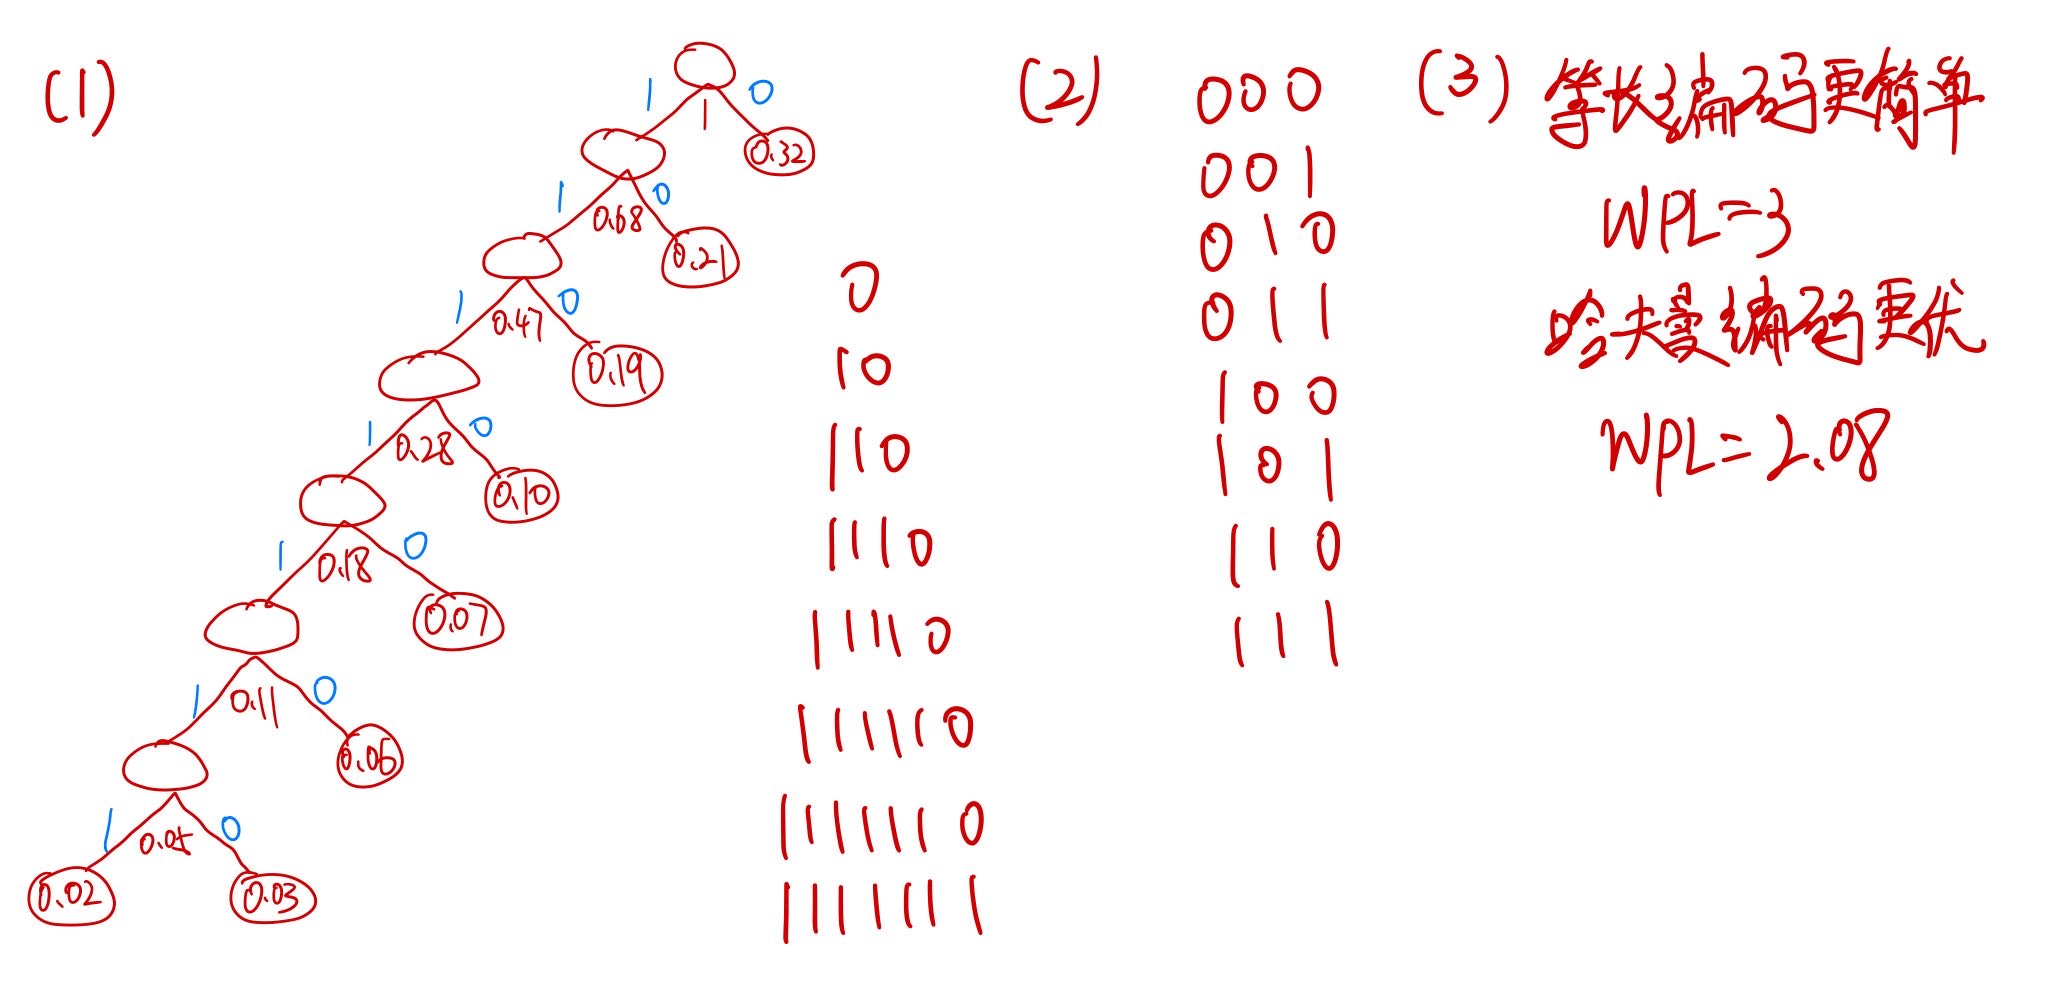 (1)
1 0
1
0.32
1 0
0.68
0.21
1 0
0.47
0.19
1 0
0.28
0.10
1 0
0.18
0.07
1 0
0.11
0.06
1 0
0.05
0.02 0.03
0
10
110
1110
11110
111110
1111110
1111111
(2)
000
001
010
011
100
101
110
111
(3) 等长编码更简单
WPL=3
哈夫曼编码更优
WPL=2.08